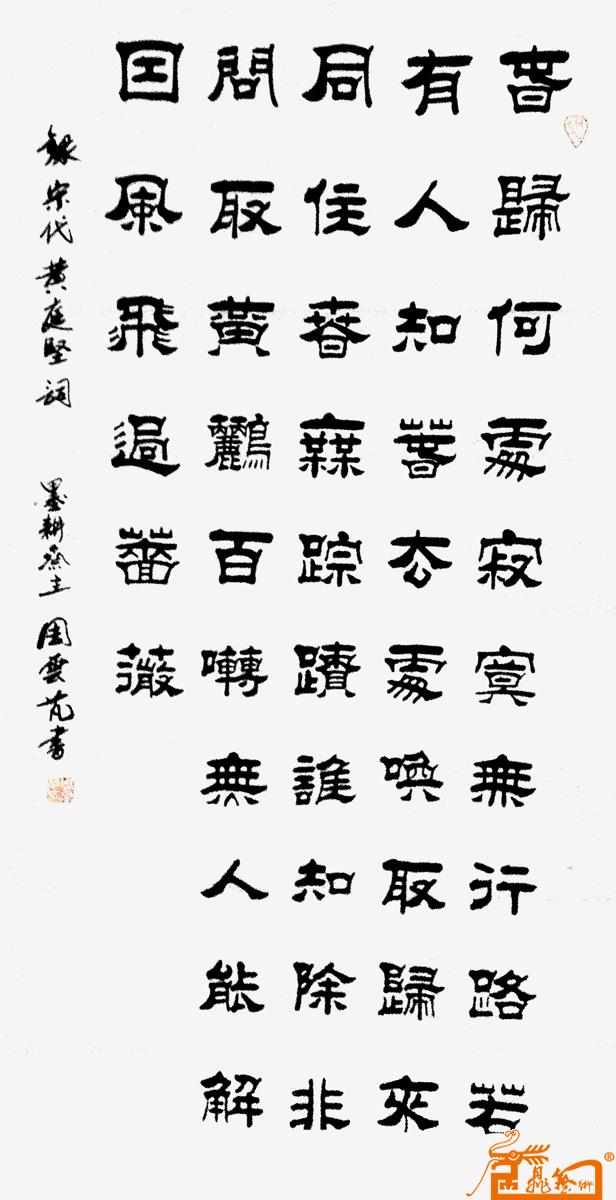 春歸何處寂寞無行路若
有人知春去處喚取歸來
同住春無踪蹟誰知除非
問取黄鸝百囀無人能解
囙風飛過薔薇
錄宋代黄庭堅詞 墨耕齋主周雲芃書